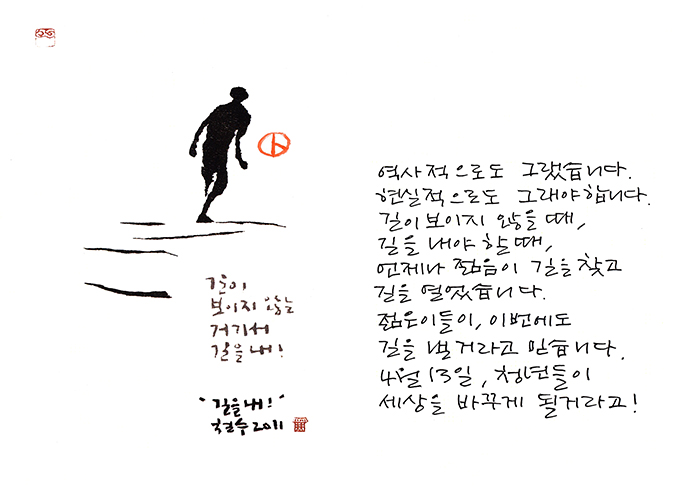 길이
보이지 않는
거기서
길을 내!
"길을 내!"
철수 2011
역사적으로도 그랬습니다.
현실적으로도 그래야합니다.
길이 보이지 않을 때,
길을 내야 할 때,
언제나 젊음이 길을 찾고
길을 열었습니다.
젊은이들이, 이번에도
길을 낼거라고 믿습니다.
4월 13일, 청년들이
세상을 바꾸게 될거라고!